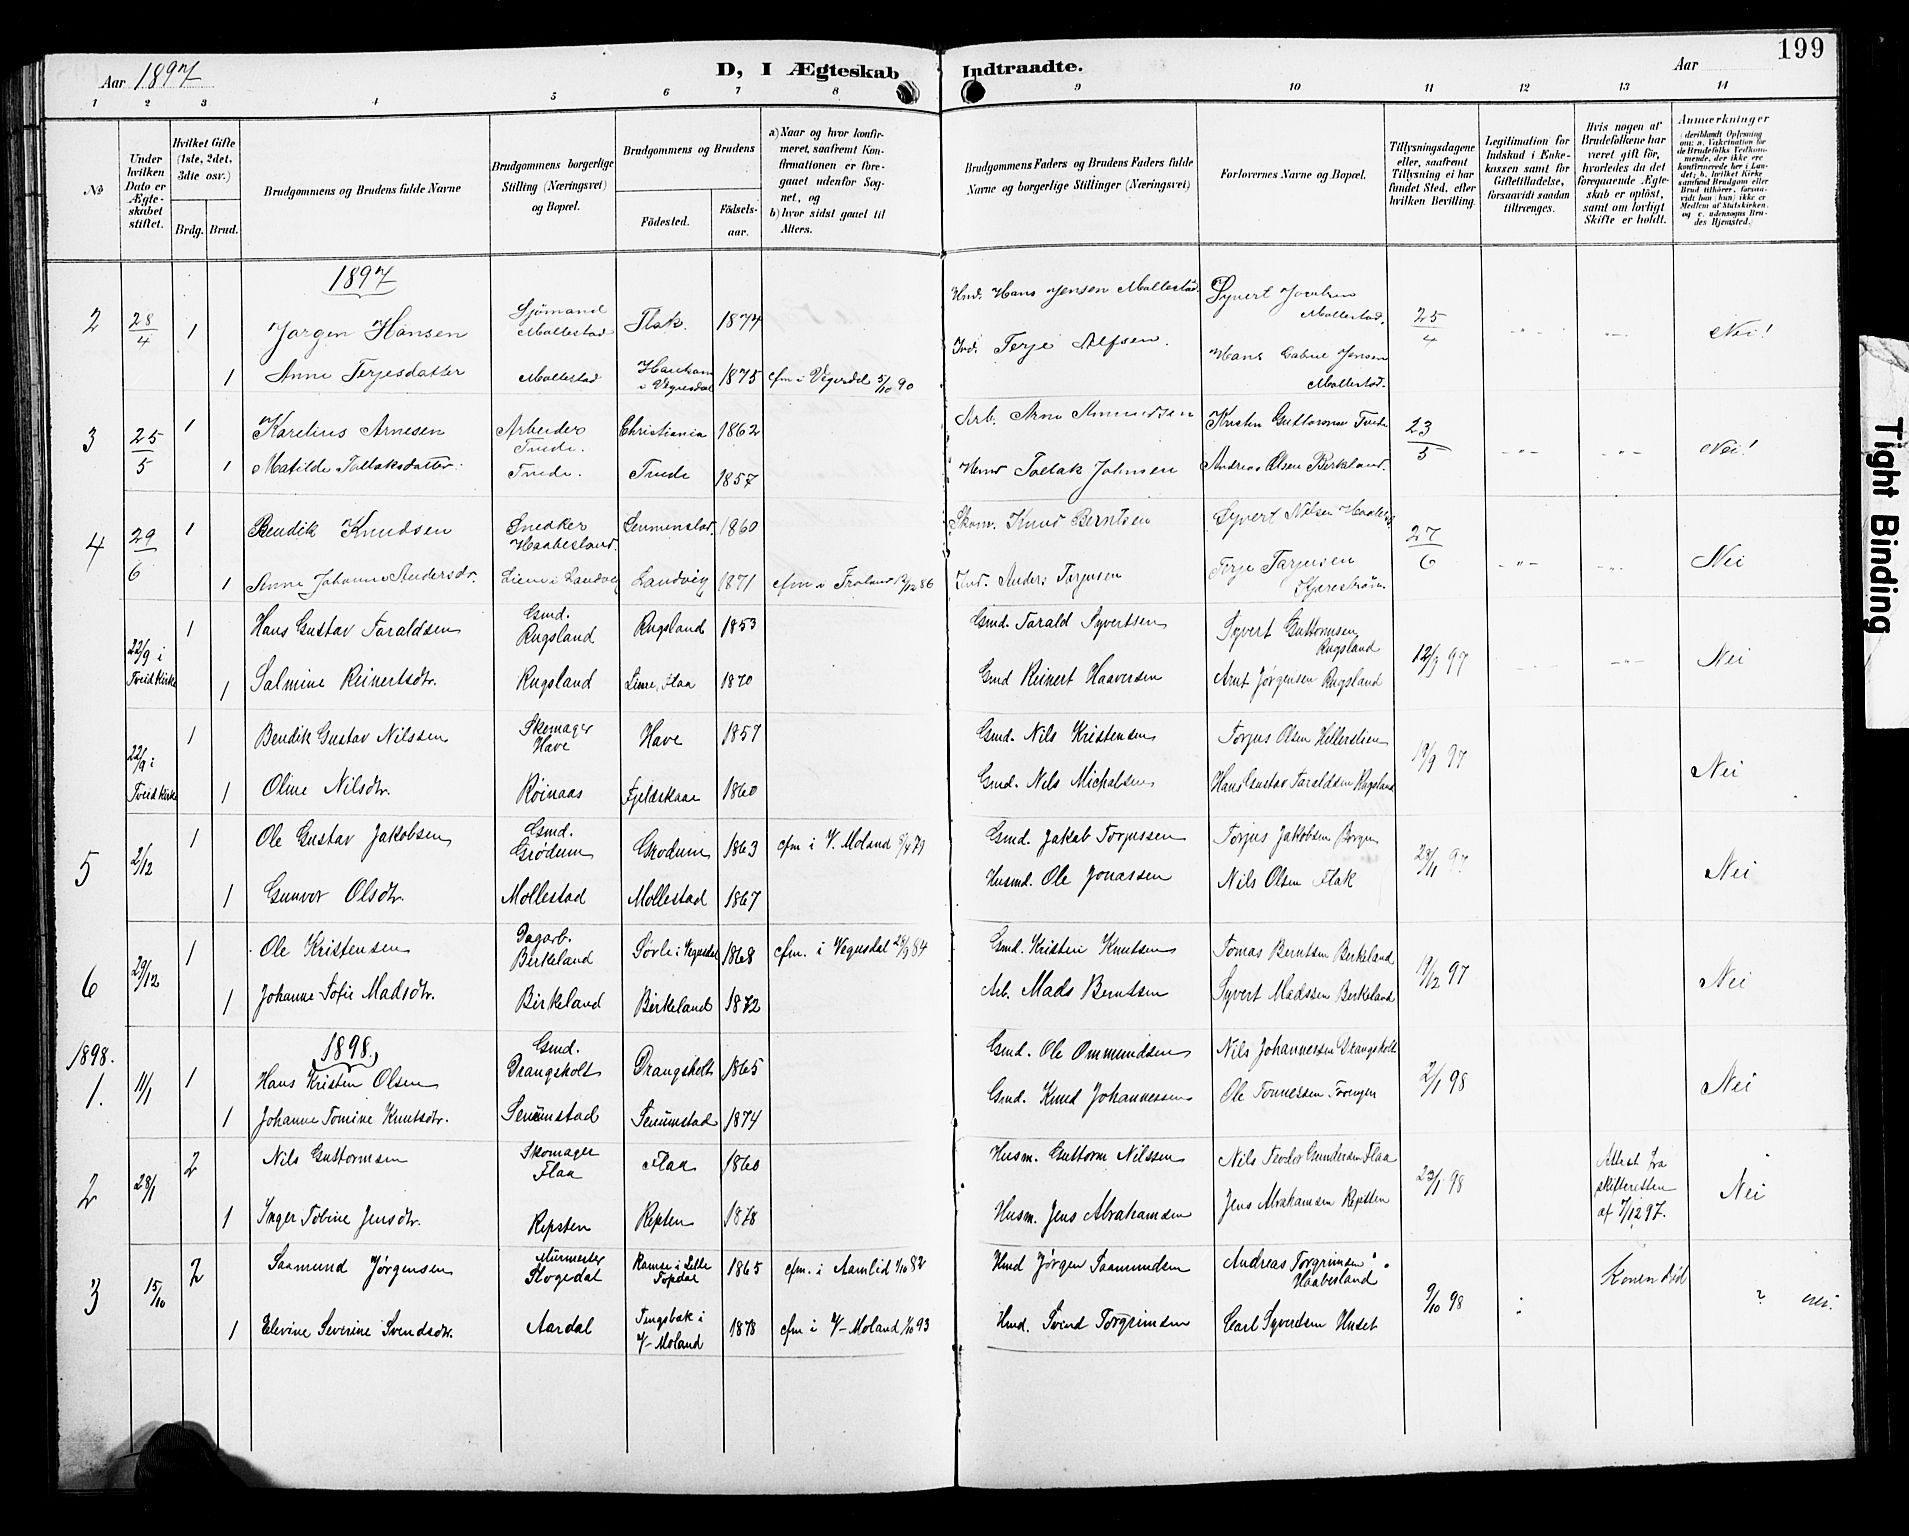 199
Aar 1897
D, I Ægteskab Indtraadte.
Aar
1 2 3 4 5 6 7 8 9 10 11 12 13 14
No
Under hvilken Dato er Ægteskabet stiftet.
Hvilket Gifte (1ste, 2det, 3die osv.)
Brdg. Brud.
Brudgommens og Brudens fulde Navne
Brudgommens borgerlige Stilling (Næringsvei) og Bopæl.
Brudgommens og Brudens
Födested.
Födselsaar.
a) Naar og hvor konfirmeret, saafremt Konfirmationen er foregaaet udenfor Sognet, og
b) hvor sidst gaaet til Alters.
Brudgommens Faders og Brudens Faders fulde Navne og borgerlige Stillinger (Næringsvei)
Forlovernes Navne og Bopæl.
Tillysningsdagene eller, saafremt Tillysning ei har fundet Sted, efter hvilken Bevilling.
Legitimation for Indskud i Enkekassen samt for Giftetilladelse, forsaavidt saadan tiltrænges.
Hvis nogen af Brudefolkene har været gift för, hvorledes da det foregaaende Ægteskab er oplöst, samt om lovligt Skifte er holdt.
Anmærkninger (deriblandt Oplysning om: a. Vakcination for de Brudefolks Vedkommende, der ikke ere konfirmerede her i Landet; b. hvilket Kirkesamfund Brudgom eller Brud tilhörer, forsaavidt han (hun) ikke er Medlem af Statskirken, og c. udensogns Brudes Hjemsted.)
1897
2 28/4 1 Jørgen Hansen Sjømand Mollestad Flak. 1874 Hans Jensen Mollestad Syvert Jacobsen Mollestad. 25/4 Nei!
1 Anne Terjesdatter Mollestad i Vegusdal 1875 cfm i Vegusdal 5/10 90 Terje Alfsen. Hans Gabriel Jensen Mollestad.
3 25/5 1 Karelius Arnesen Arbeider Tveide. Christiania 1862 Arb. Arne Amundsen Kristen Guttormsen Tveide 23/5 Nei!
1 Matilde Tallaksdatter. Tveide. Tveide 1857 Tallak Johnsen Andreas Olsen Birkeland.
4 29/6 1 Bendik Knudsen Snedker Haabesland. Senumstad. 1860 Skom. Knud Berntsen Syvert Nilsen 27/6 Nei
1 Anne Johanne Andersdr. Lien i Landvig Landvig 1871 cfm i Froland 12/12 86 Anders Terjesen Terje Tarjeisen
22/9 i Tveid Kirke 1 Hans Gustav Taraldsen Gmd. Rugsland Rugsland 1853 Gmd. Tarald Syvertsen Syvert Guttormsen Rugsland 12/9 97 Nei
1 Salmine Reinertsdtr. Rugsland Lien, Flaa 1870 Gmd Reinert Haaversen Arnt Jørgensen Rugsland
22/9 i Tveid Kirke 1 Bendik Gustav Nilssen Skomager Have Have 1857 Gmd. Nils Kristensen Torjus Olsen 19/9 97 Nei
1 Oline Nilsdtr. Røinaas Fjeldskaar 1860 Gmd. Nils Michalsen Hans Gustav Taraldsen Rugsland
5 2/12 1 Ole Gustav Jakobsen Gmd. Grødum Grodum 1863 cfm i V. Moland 79 Gmd. Jakob Torjussen Torjus Jakobsen Borgen 28/11 97 Nei
1 Gunvor Olsdtr. Mollestad Mollestad 1867 Husmd. Ole Jonassen Nils Olsen Flak
6 29/12 1 Ole Kristensen Dagarb. Birkeland Søvle i Vegusdal 1868 cfm. i Vegusdal 28/9 84 Gmd. Kristen Knutsen Tomas Berntsen Birkeland 19/12 97 Nei
1 Johanne Sofie Madsdtr. Birkeland Birkeland 1872 Arb. Mads Berntsen Syvert Madssen Birkeland
1898. (1898.)
1. 11/1 1 Hans Kristen Olsen Gmd. Drangsholt Drangsholt 1865 Gmd. Ole Ommundsen Nils Johannessen Drangsholt 2/1 98 Nei
1 Johanne Tomine Knutsdtr. Senumstad Senumstad 1874 Gmd. Knud Johannessen Ole Tonnessen
2 28/1 2 Nils Guttormsen Skomager Flaa Flaa 1860 Husm. Guttorm Nilssen Nils Teodor Gundersen Flaa 23/1 98 Attest fra skifteretten af 7/12 97. Nei
1 Inger Tobine Jensdtr. Repsten Repsten 1878 Husm. Jens Abrahamsen Jens Abrahamsen Repsten
3 15/10 2 Saamund Jørgensen Murmester Stogedal Ramse i Lille Topdal 1865 cfm. i Aamlid 1/10 82 Hmd Jørgen Saamundsen Andreas Torgrimsen Haabesland 9/10 98 Konen død ?
1 Elevine Severine Svendsdtr. Aardal Tingsbak i V-Moland 1878 cfm i V-Moland 1/10 93 Hmd. Svend Torgrimsen Carl Syvertsen Huset
Tight Binding